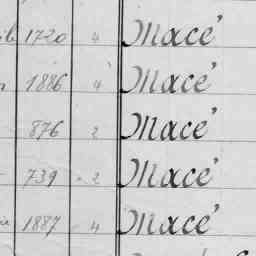 1720 4 Macé
1886 4 Macé
876 2 Macé
739 2 Macé
1887 4 Macé